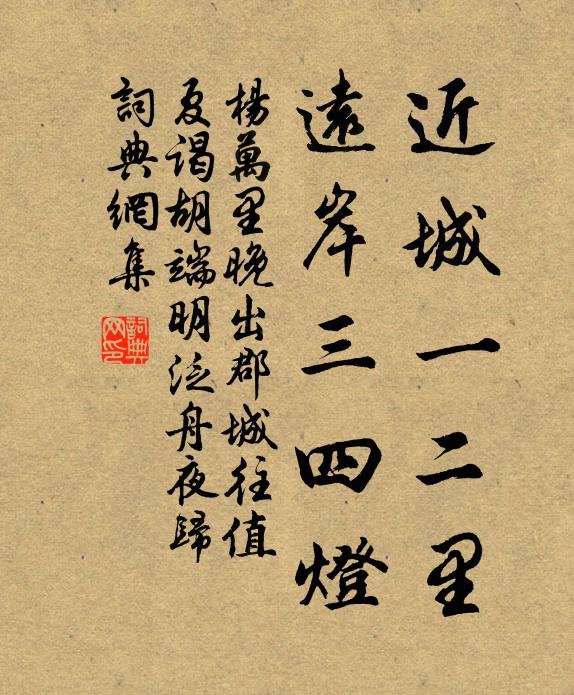 近城一二里
遠岸三四燈
楊萬里晚出郡城往值
夏謁胡端明泛舟夜歸
詞典網集
詞典网印